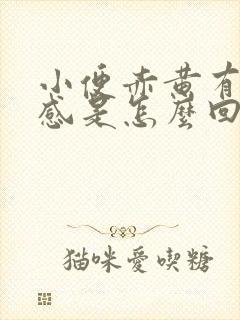 小便赤黄有
感是怎麼回
猫咪愛喫糖